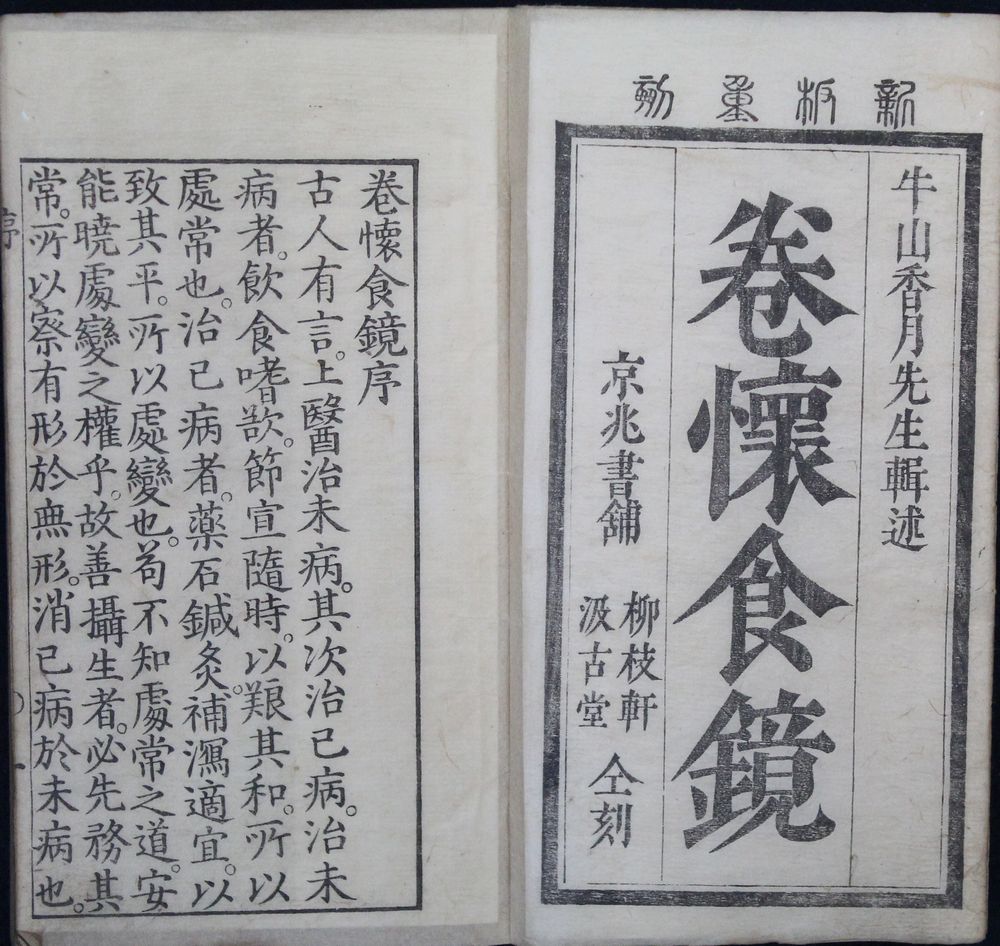 新板重
牛山香月先生輯述
卷懷食鏡
京兆書舖
柳枝軒
汲古堂
仝刻
卷懷食鏡序
古人有言。上醫治未病。其次治已病。治未
病者。飲食嗜欲。節宣隨時。以艱其和。所以
處常也。治已病者。藥石鍼灸。補瀉適宜。以
致其平。所以處變也。苟不知處常之道。安
能曉處變之權乎。故善攝生者。必先務其
常。所以察有形於無形。消已病於未病也。
序
一